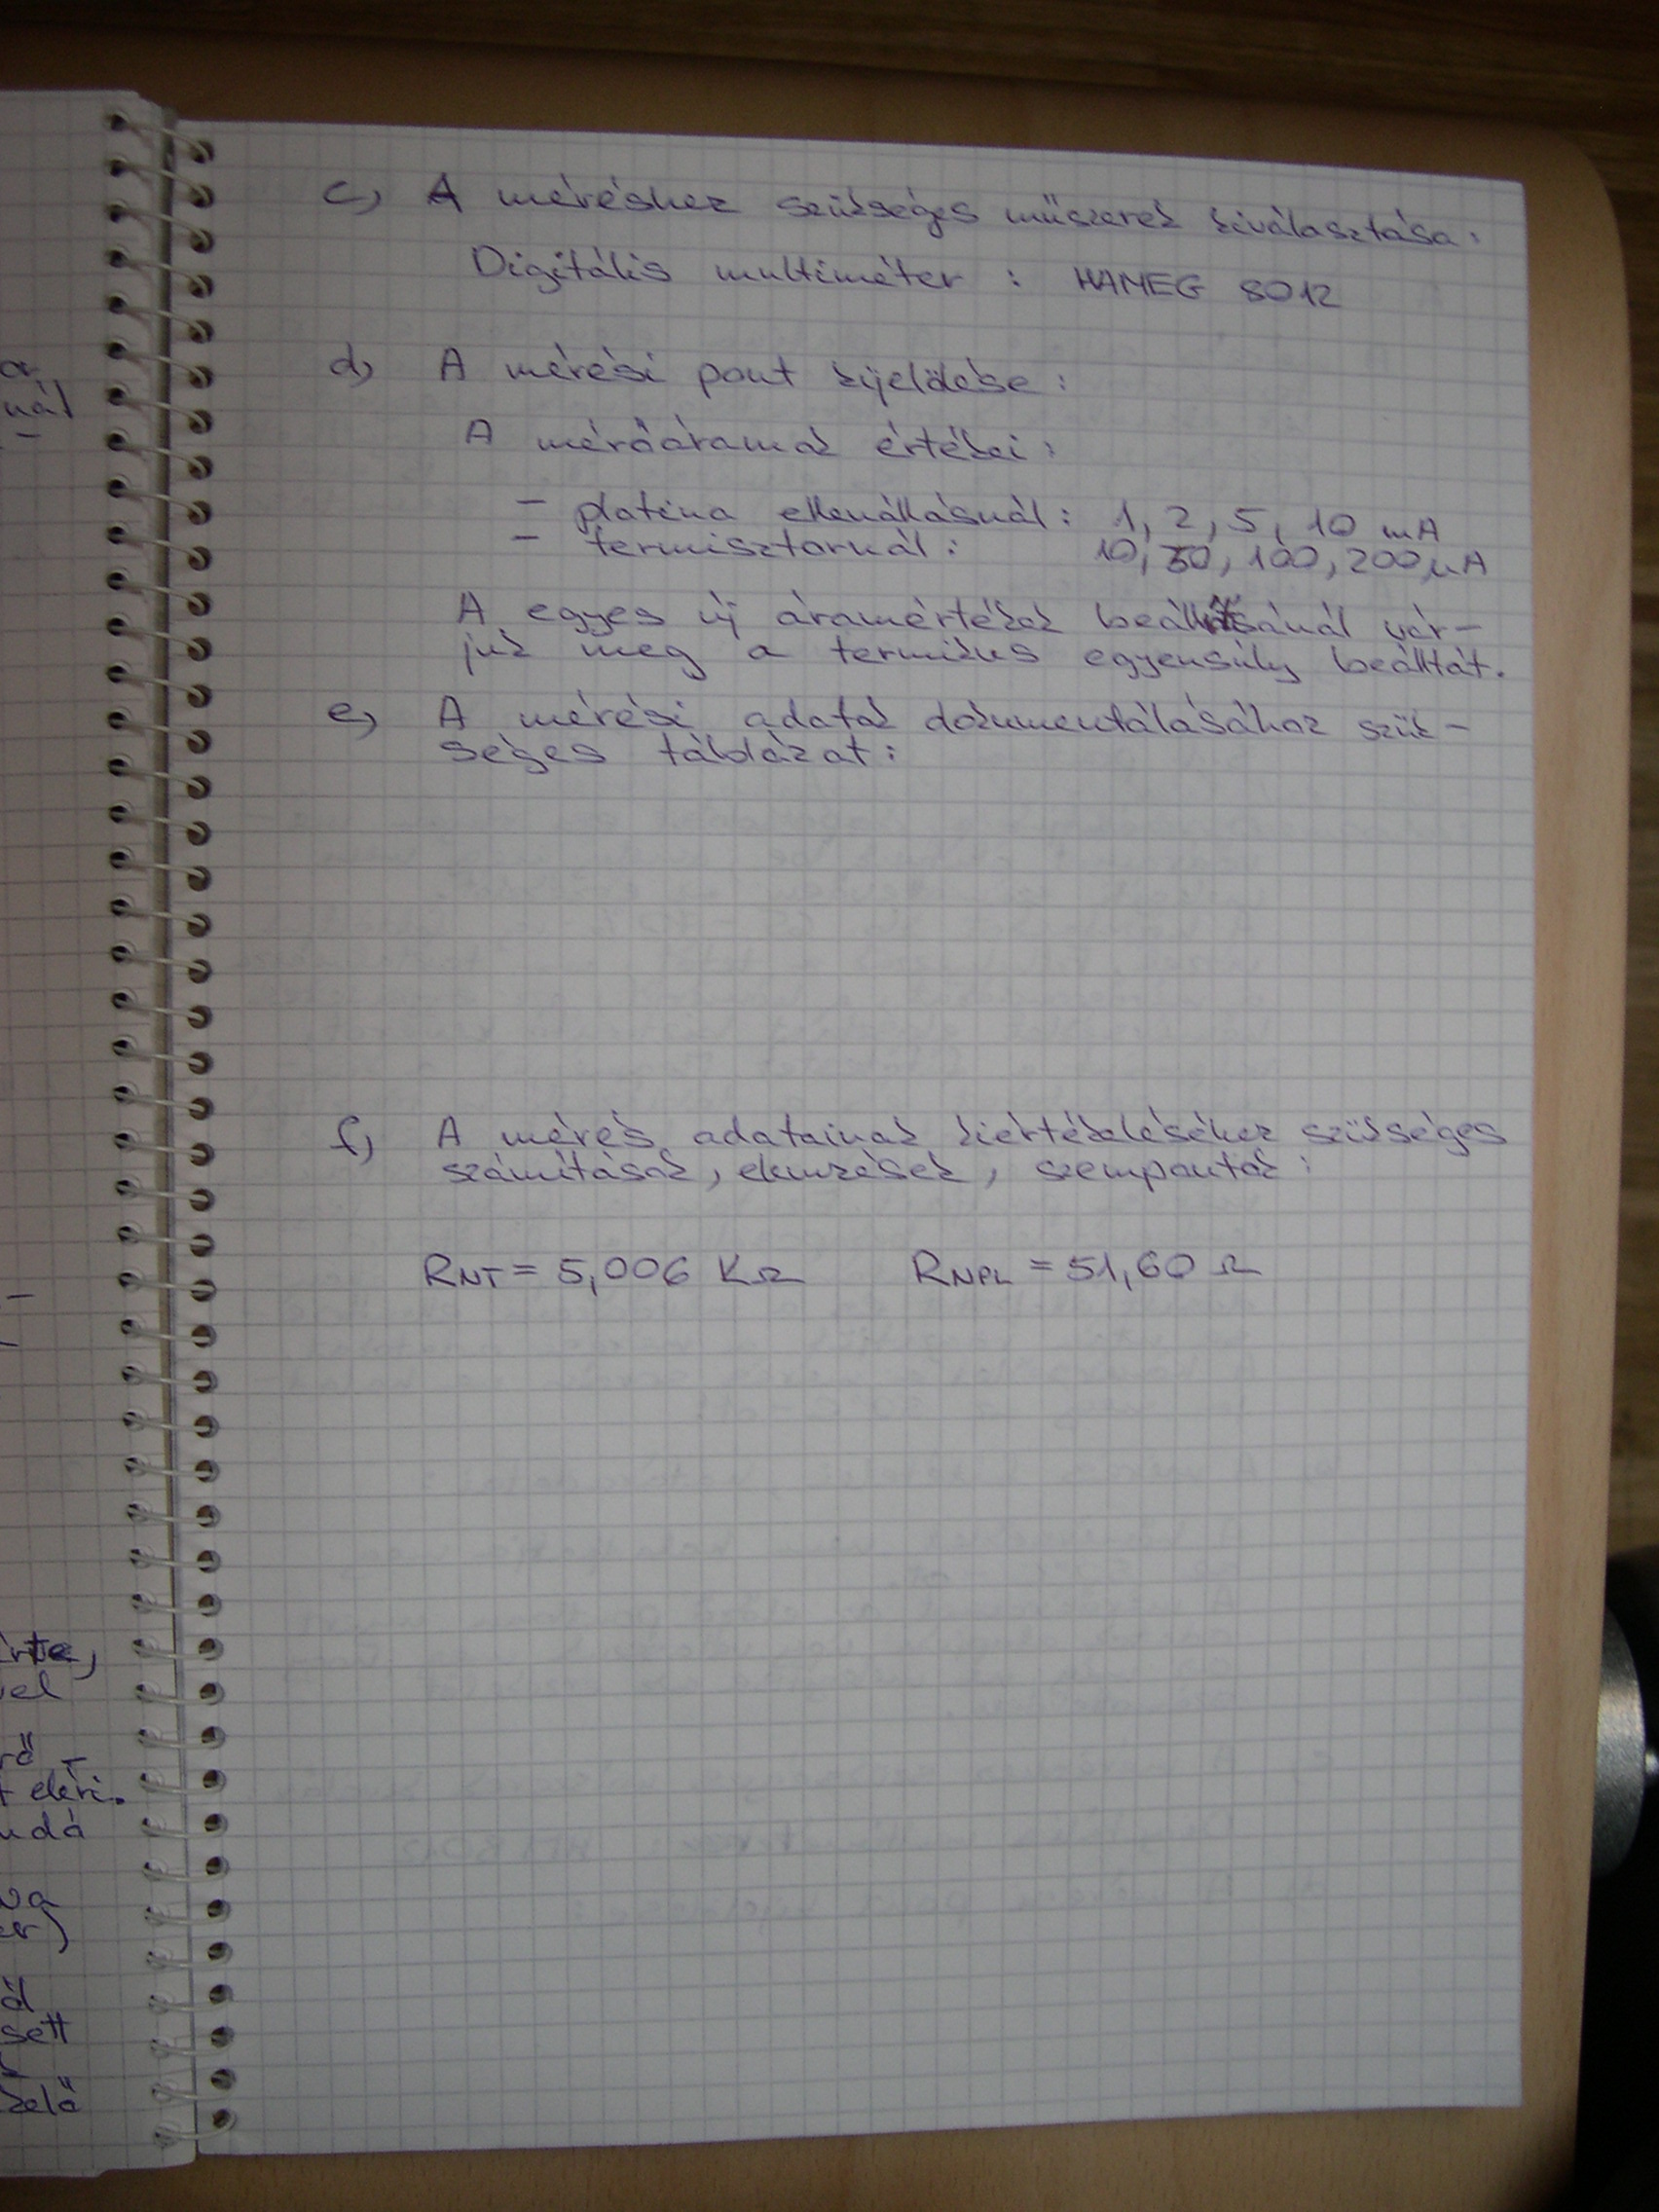 or
nál
–
c) A méréshez szükséges műszerek kiválasztása:
Digitális multiméter : HAMEG 8012
d) A mérési pont kijelölése :
A mérőáramok értékei :
– platina ellenállásnál : 1, 2, 5, 10 mA
– termisztornál : 10, 50, 100, 200 µA
A egyes új áramértékek beállításánál vár–
juk meg a termikus egyensúly beálltát.
e) A mérési adatok dokumentálásához szük–
séges táblázat :
f) A mérés adatainak kiértékeléséhez szükséges
számítások, elemzések, szempontok :
RNT = 5,006 KΩ RNPL = 51,60 Ω
vel
t eléri.
sett